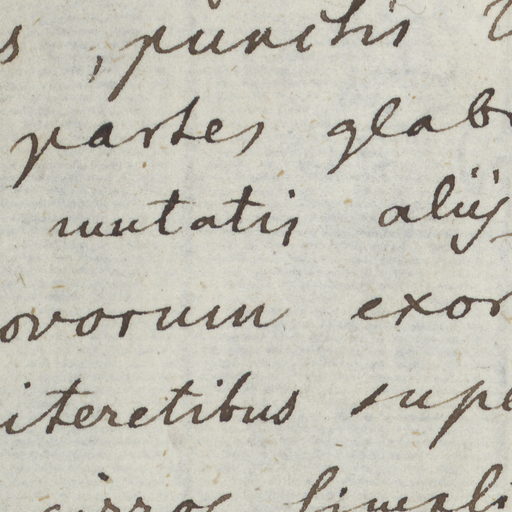 s, punctis
partes glab
mutatis aliis
ovorum exor
iteretibus supe
cirros simpli